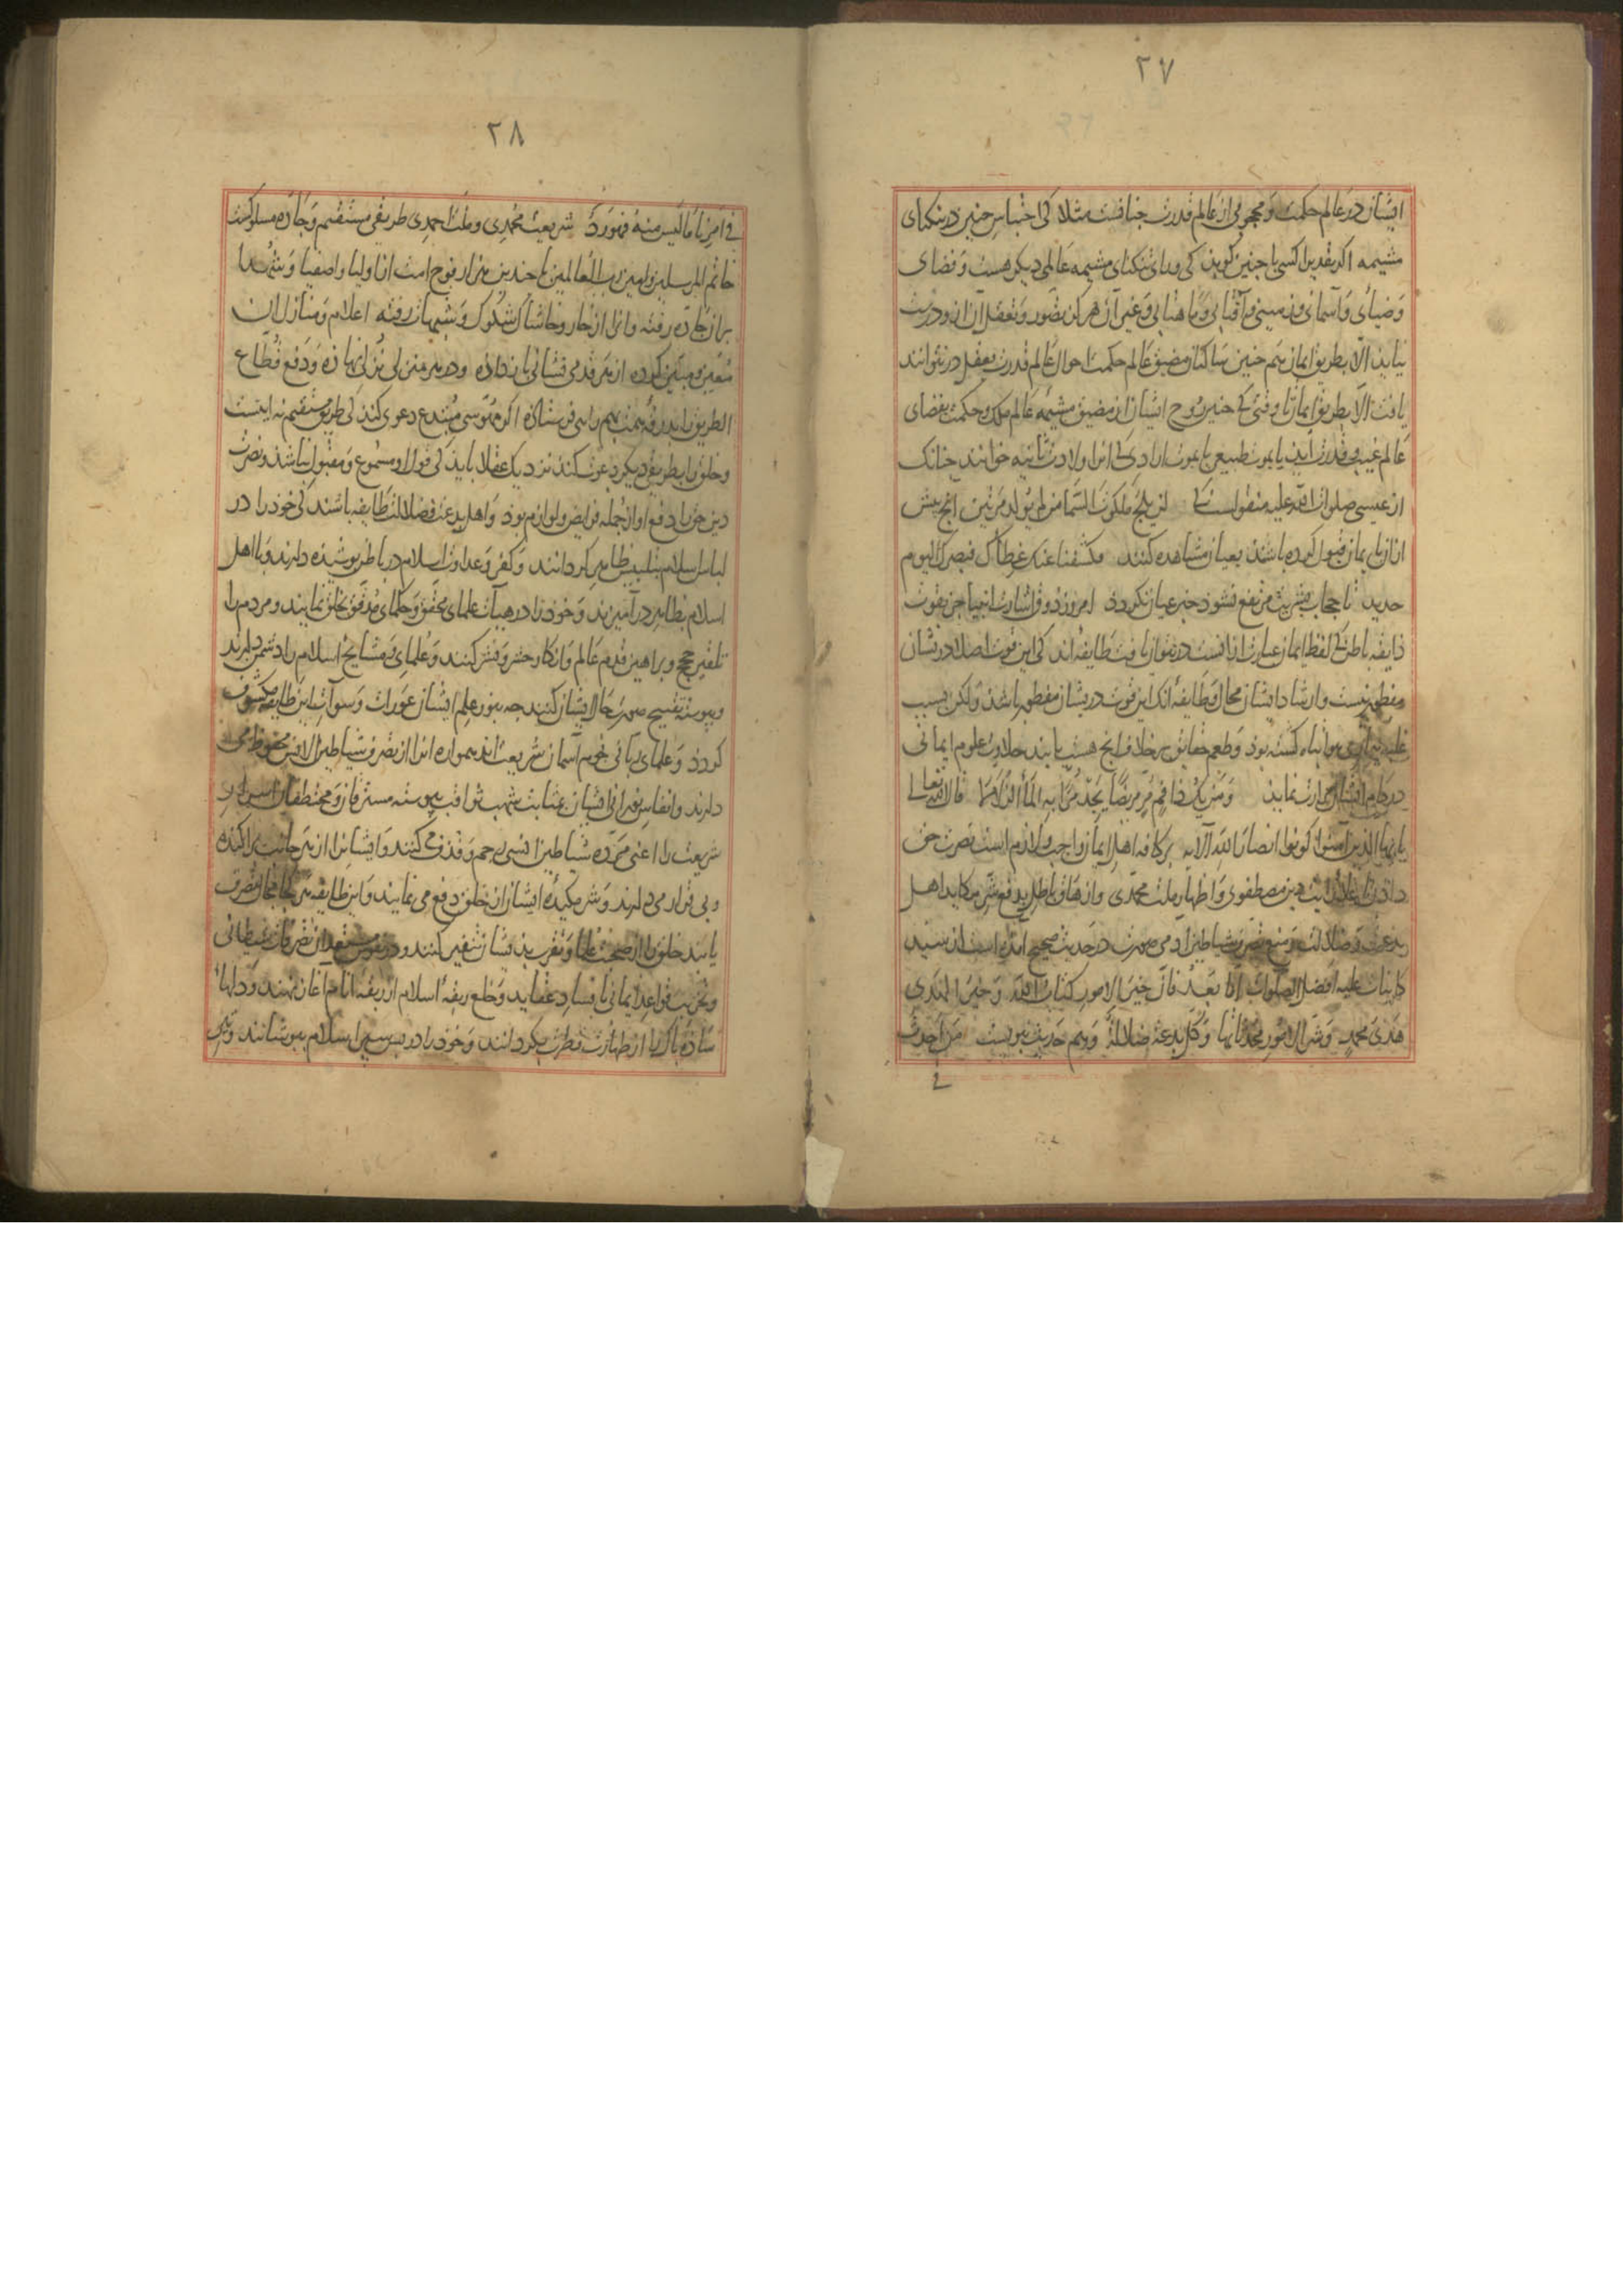 ۲۷
ایشان در عالم حکمت و محجوبی از عالم قدرت چنانست مثلا کی احتباس جنین در تنکنای
مشیمه اکر بتقدیر کسی با جنین کوید کی ورای تنکنای مشیمه عالمی دیکر هست و فضای
و ضیائی و آسمانی و زمینی و آفتابی و ماهتابی و غیر آن هرکز تصور و تعقل آن از و درست
نیاید الا بطریق ایمان همچنین ساکنان مضیق عالم حکمت احوال عالم قدرت بعقل در نتوانند
یافت الا بطریق ایمان تا وقتی کی جنین روح ایشان از مضیق مشیمه عالم ملک و حکمت بفضای
عالم غیب و قدرت آید یا بموت طبیعی یا بموت ارادی کی انرا ولادت ثانیه خوانند چنانک
از عیسی صلوات الله علیه منقولست کی لن یلج ملکوت السما من لم یولد مرتین آنچ پیش
ازان بایمان قبول کرده باشند بعیان مشاهده کنند فکشفنا عنک غطاک فبصرک الیوم
حدید تا حجاب بشریت مرتفع نشود خبر عیان نکردد امروز ذوق اشارت انبیا جز بقوت
ذایقه باطن کی لفظ ایمان عبارت ازانست در نتوان یافت طایفه اند کی این قوت اصلا در نشان
مفطور نیست و ارشاد ایشان محال و طایفه انک این قوت دریشان مفطور باشد ولکن بسبب
غلبه بیماری هوا تباه کشته بود و طعم حقایق بر خلاف انچ هست یابند حلاوت علوم ایمانی
در کام ایشان مرارت نماید ومن یک ذا فم مر مریض یجد مرا به الما الزلالا قال الله تعالی
یا ایها الذین آمنوا کونوا انصار الله الآیه بر کافه اهل ایمان واجب و لازم است نصرت حق
دادن باعلاء رایت دین مصطفوی و اظهار ملت محمدی و ازهاق باطل بدفع شر مکاید اهل
بدعت و ضلالت و منع تصرف شیاطین ادمی صورت در حدیث صحیح امده است از سید
کاینات علیه افضل الصلوات اما بعد فان خیر الامور کتاب الله و خیر الهدی
هدی محمد و شر الامور محدثاتها و کل بدعة ضلالة و هم حدیث نبویست من احدث
فی
۲۸
فی امرنا ما لیس منه فهو رد شریعت محمدی و ملت احمدی طریقی مستقیم و جاده مسلوکست
خاتم المرسلین و امین رب العالمین با چندین هزار فوج امت از اولیا و اصفیا و شهدا
بران جاده رفته و انرا از خار و خاشاک شکوک و شبهات رفته اعلام و منازل ان
معین و مبین کرده از هر قدمی نشانی باز داده و در هر منزلی نزلی نهاده و دفع قطاع
الطریق را بدرقه همت همراهی فرستاده اکر مهوسی مبتدع دعوی کند کی طریق مستقیم نه اینست
و خلق را بطریقی دیکر دعوت کند نزدیک عقلا باید کی قول او مسموع و مقبول نباشد و نصرت
دین حق را دفع او از جمله فرایض و لوازم بود و اهل بدعت و ضلالت طایفه باشند کی خود را در
لباس اسلام بتلبیس ظاهر کردانند و کفر و عداوت اسلام در باطن پوشیده دارند و با اهل
اسلام بظاهر درآمیزند و خود را در هیات علمای محقق و حکمای مدقق بخلق نمایند و مردم را
تلقین حجج و براهین قدم عالم و انکار حشر و نشر کنند و علمای و مشایخ اسلام را دشمن دارند
و پیوسته تقبیح صورت حال ایشان کنند چه بنور علم ایشان عورات و سوآت این طایفه مکشوف
کردد و علمای ربانی نجوم آسمان شریعت اند همواره انرا از تصرف شیاطین الانس محفوظ می
دارند و انفاس نورانی ایشان بمثابت شهب ثواقب پیوسته مسترقان و مختطفان اسرار
شریعت را اعنی مرده شیاطین انسی رجم و قذف می کنند و ایشانرا از هر جانب پراکنده
و بی قرار می دارند و شر مکیده ایشان از خلق دفع می نمایند و این طایفه هر کجا مجال تصرف
یابند خلق را از صحبت علما و تقرب بدیشان تنفیر کنند و در نفوس مستعد از تصرفات شیطانی
و تخریب قواعد ایمانی بافساد عقاید و خلع ربقه اسلام از ربقه انام اغاز نهند و دلهاء
ساده پاک را از طهارت فطرت بکردانند و خود را در پس سپر اسلام بپوشانند و تیر